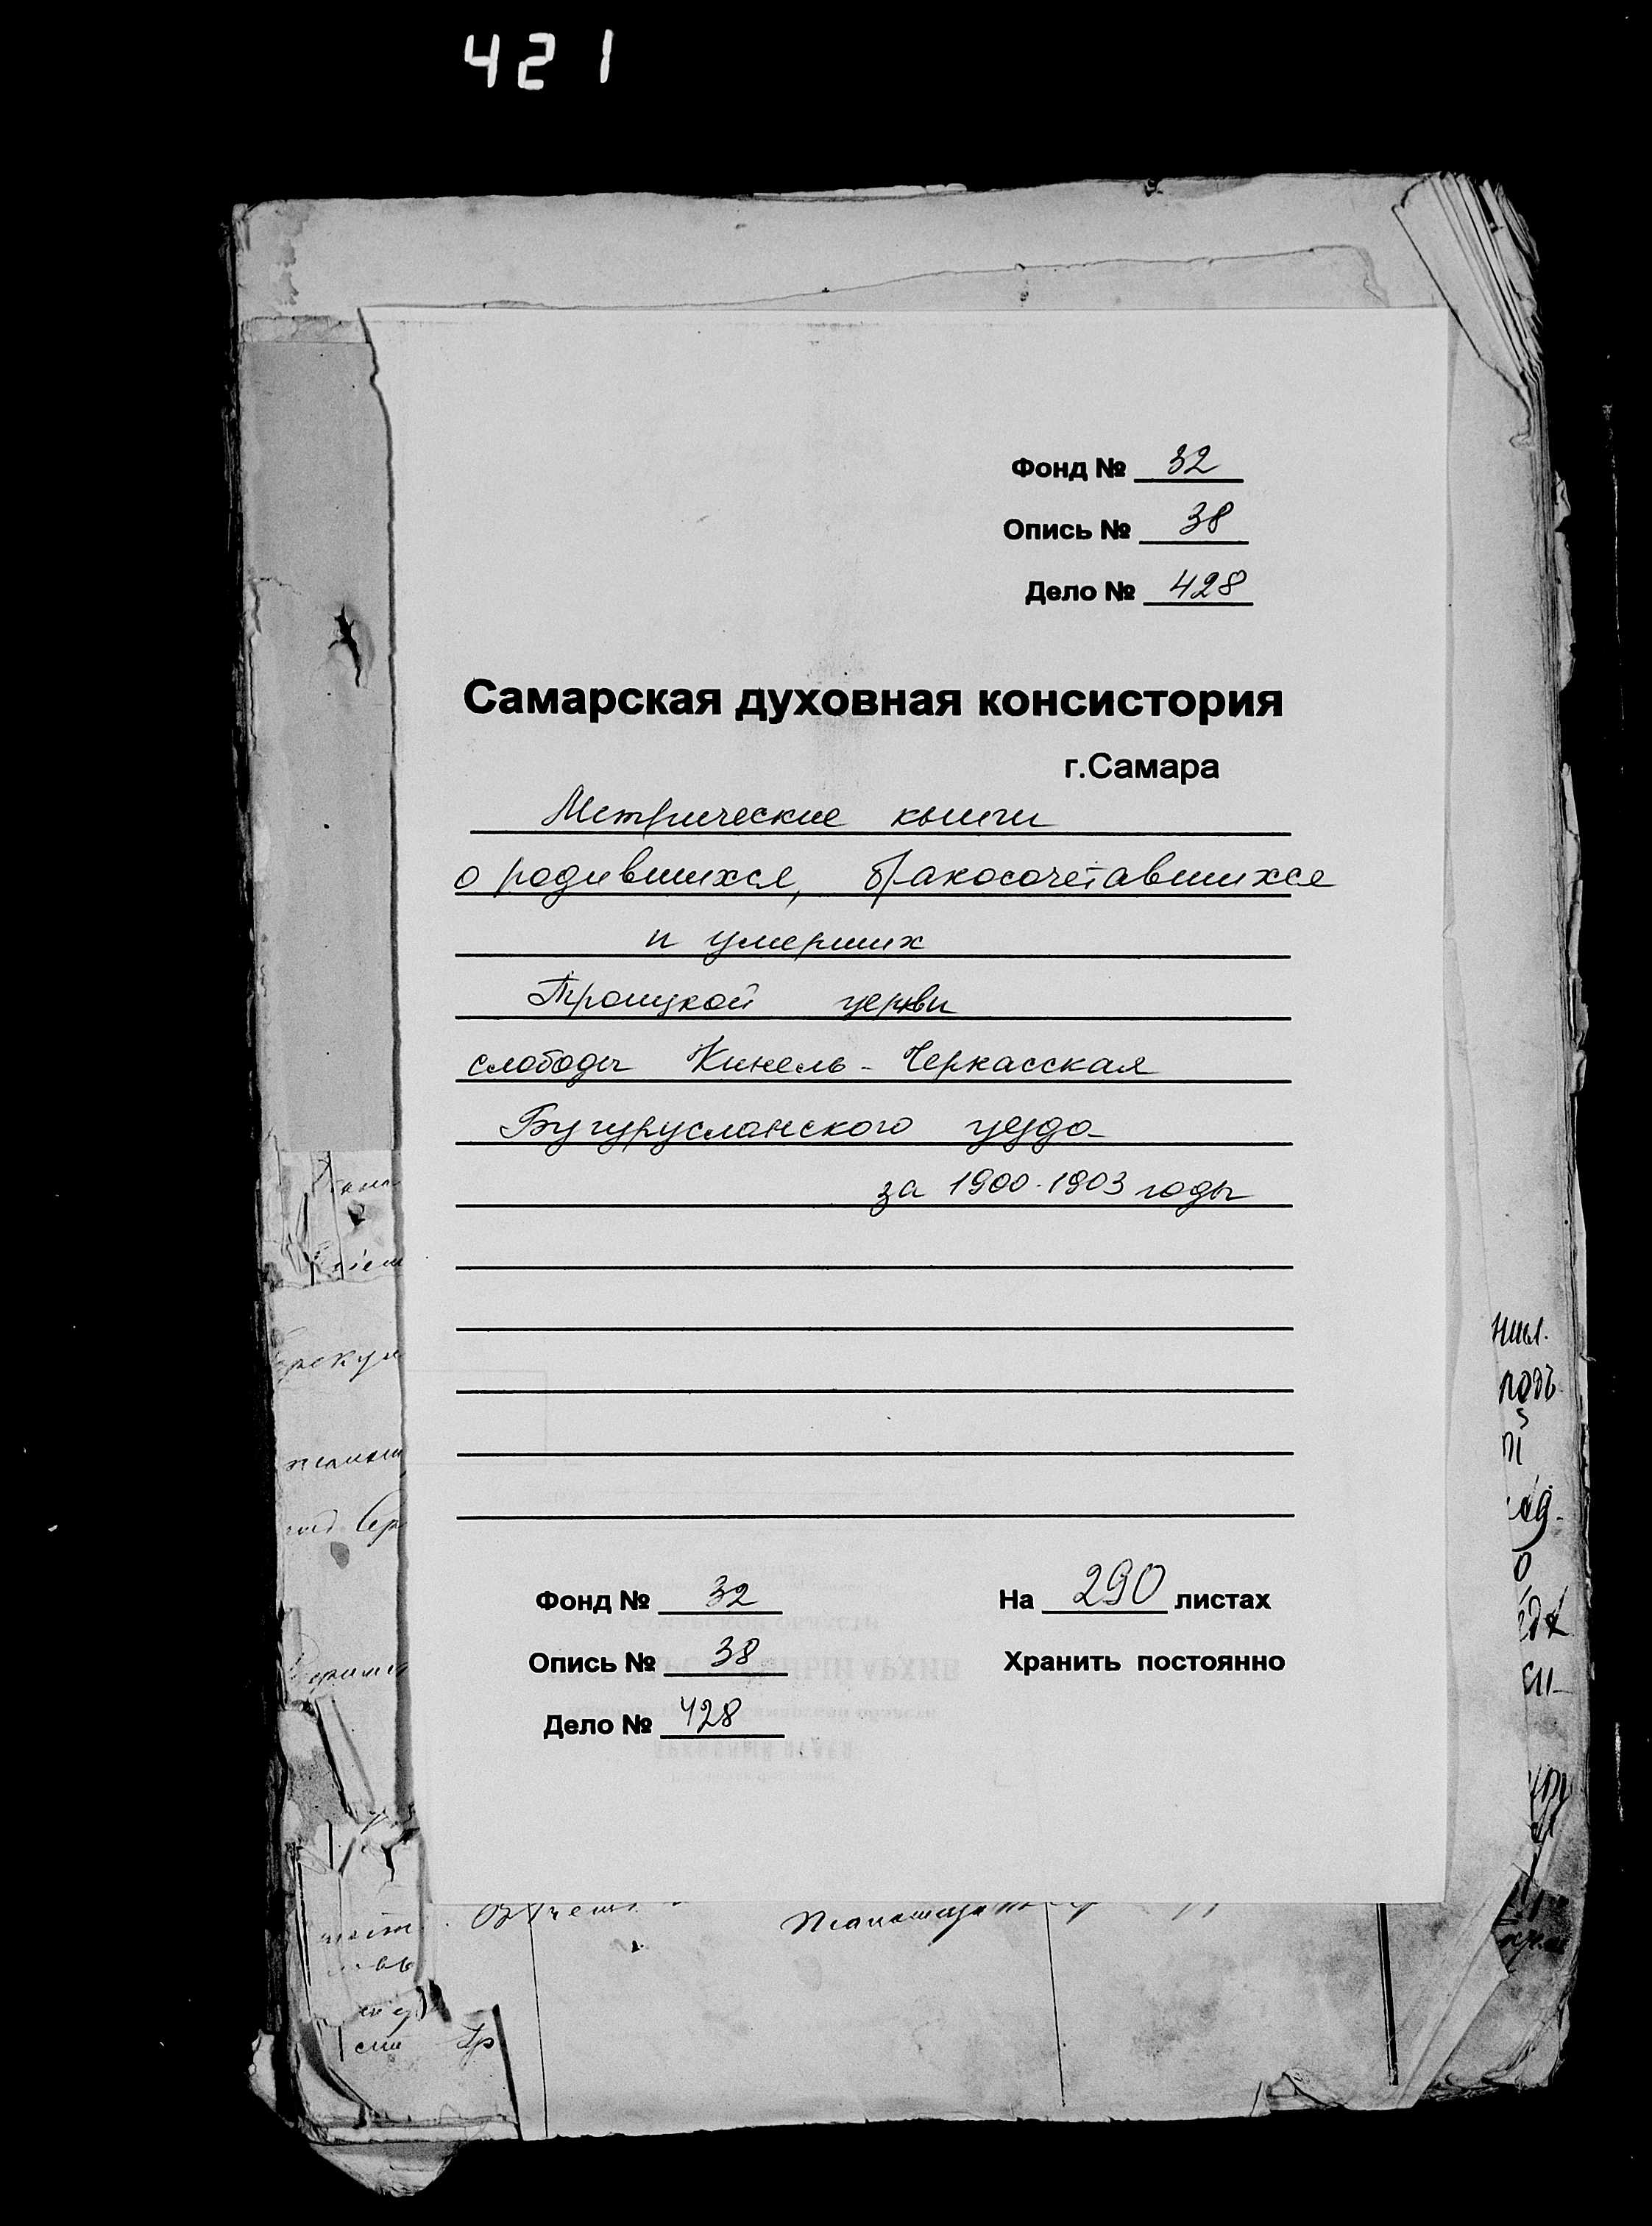 421
Фонд № 32
Опись № 38
Дело № 428
Самарская духовная консистория
г.Самара
Метрические книги
о родившихся, бракосочетавшихся
и умерших
Троицкой церкви
слободы Кинель-Черкасская
Бугурусланского уезда
за 1900-1903 годы
Фонд № 32 На 290 листах
Опись № 38 Хранить постоянно
Дело № 428